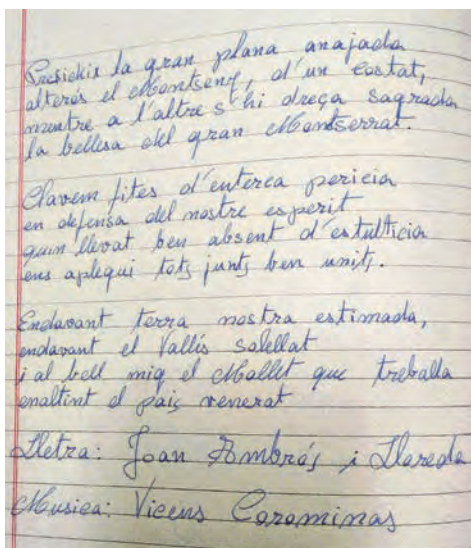 Presideix la gran plana anajada
alterós el Montseny, d'un costat,
mentre a l'altre s'hi dreça sagrada
la bellesa del gran Montserrat.
Clavem fites d'enterca pericia
en defensa del nostre esperit
quin llevat ben absent d'estulticia
ens aplequi tots junts ben units.
Endavant terra nostra estimada,
endavant el Vallès solellat
i al bell mig el Mollet que treballa
enaltint el pais venerat
Lletra: Joan Ambrós i Lloreda
Musica: Vicens Corominas